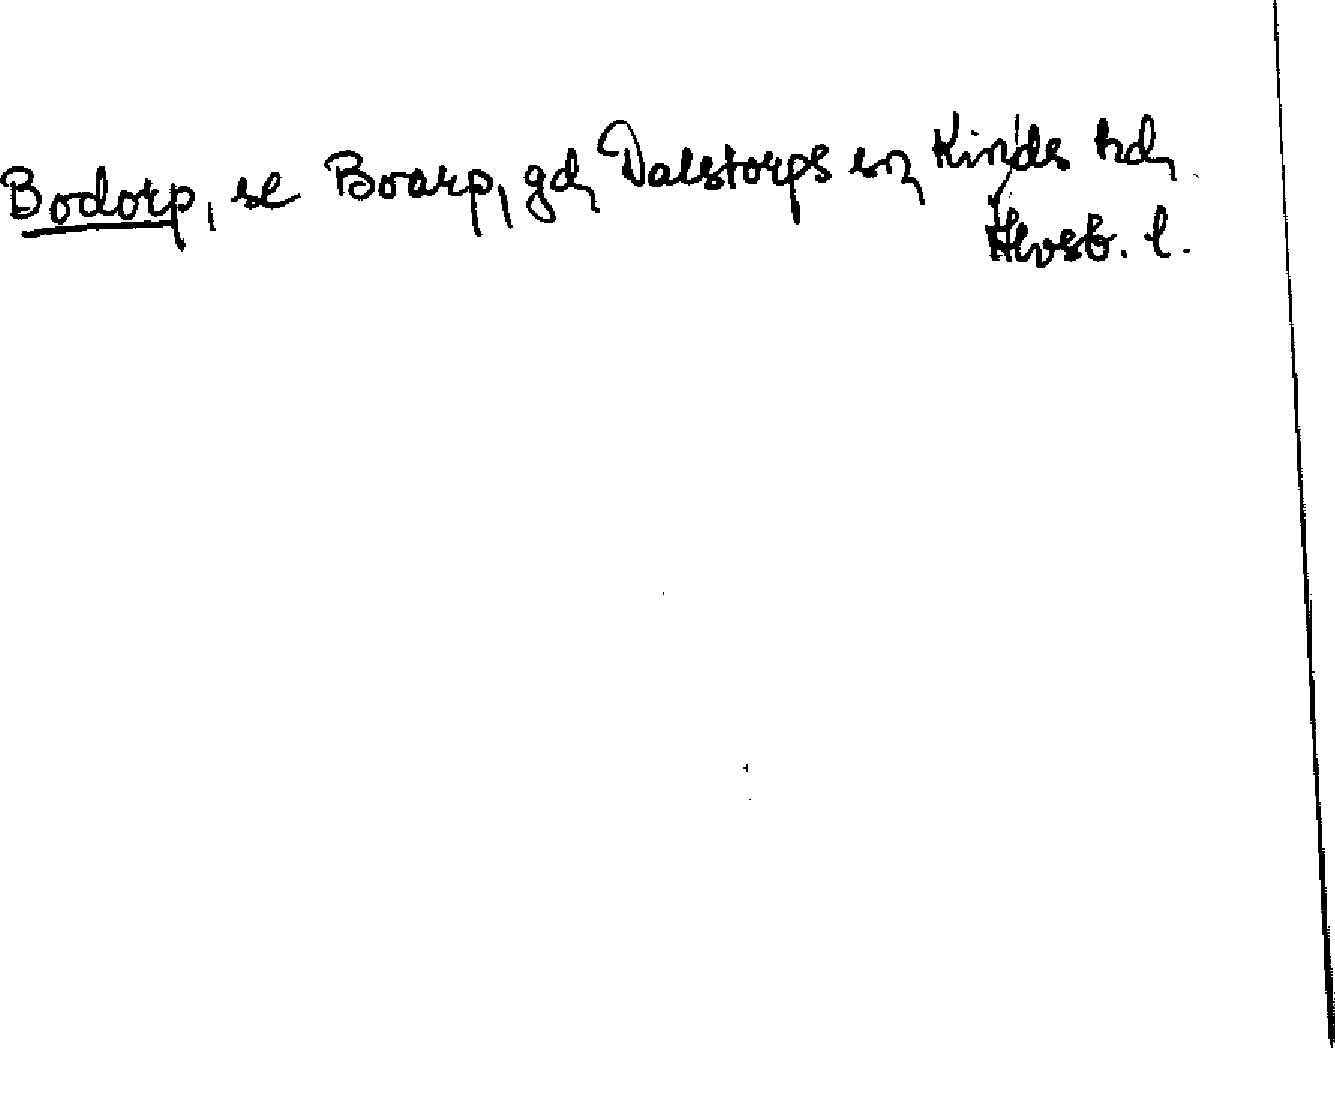 Bodorp, se Boarp, gd Dalstorps sn Kinds hd
Älvsb. l.